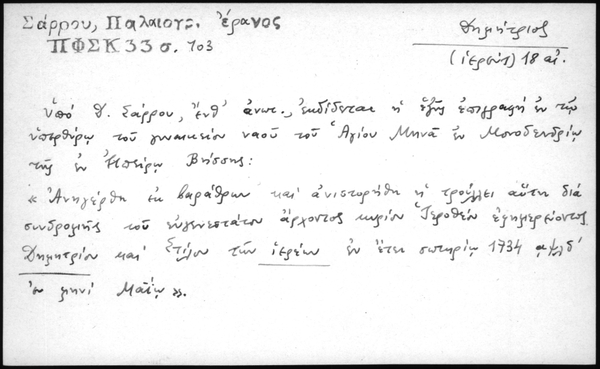 Σάρρου, Παλαιογρ. Ἔρανος
ΠΦΣΚ 33 σ. 103
Δημήτριος
(ἱερεύς) 18 αἰ.
ὑπό Δ. Σάρρου, ἔνθ' ἀνωτ., ἐκδίδεται ἡ ἑξῆς ἐπιγραφή ἐν τῷ
ὑπερθύρῳ τοῦ γυναικείου ναοῦ τοῦ Ἁγίου Μηνᾶ ἐν Μονοδενδρίῳ
τῆς ἐν Ἠπείρῳ Βήσσης:
« Ἀνηγέρθη ἐκ βαράθρων καί ἀνιστορήθη ἡ τρούλλα αὕτη διά
συνδρομῆς τοῦ εὐγενεστάτου ἄρχοντος κυρίου Ἱεροθέου ἐφημερεύοντος
Δημητρίου καί Στύλου τῶν ἱερέων ἐν ἔτει σωτηρίῳ 1734 αψλδ'
ἐν μηνί Μαΐῳ ».